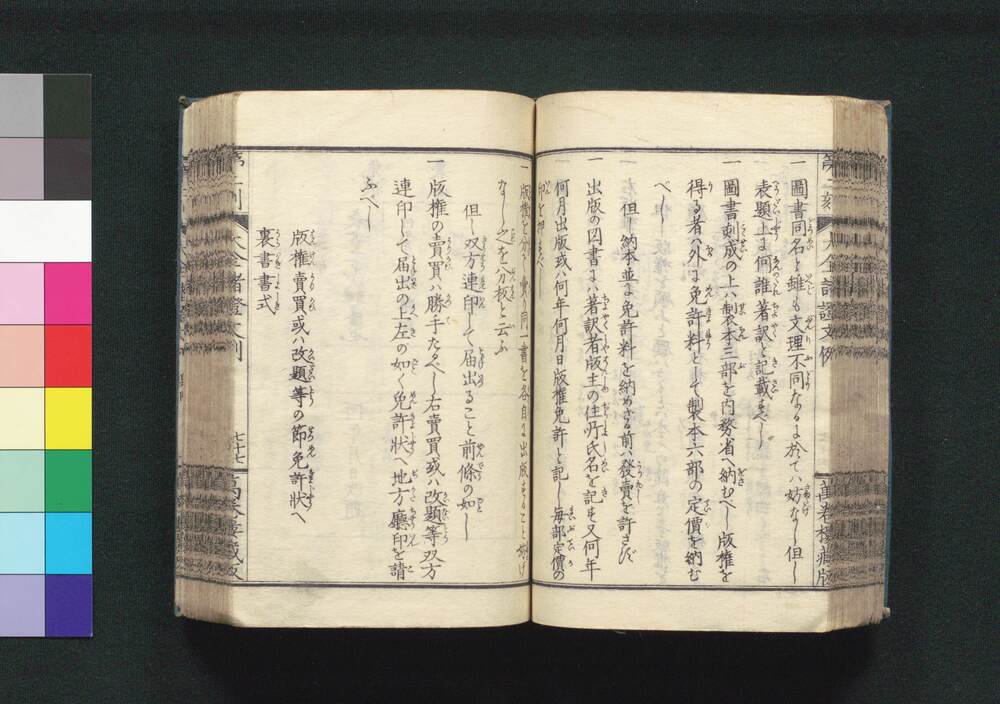 一 圖書同名と雖も文理不同なるに於てハ妨なし但し
表題上に何誰著訳と記載すべし
一 圖書刻成の上ハ製本三部を内務省へ納むべし版權を
得る者ハ外に免許料として製本六部の定價を納む
べし
一 但し納本並に免許料を納めざる前ハ發賣を許さず
一 出版の図書にハ著訳者版主の住所氏名を記す又何年
何月出版或ハ何年何月日版権免許と記し毎部定價の
印を押すべし
一 版權を分ち同一書を各自に出版することを妨げ
なし之を分板と云ふ
但し双方連印して届出ること前條の如し
一 版権の賣買ハ勝手たるべし右賣買或ハ改題等双方
連印して届出の上左の如く免許状へ地方廳印を請
ふべし
版権賣買或ハ改題等の節免許状へ
裏書書式
第二刻
大全諸證文例
萬巻樓藏版
七十七